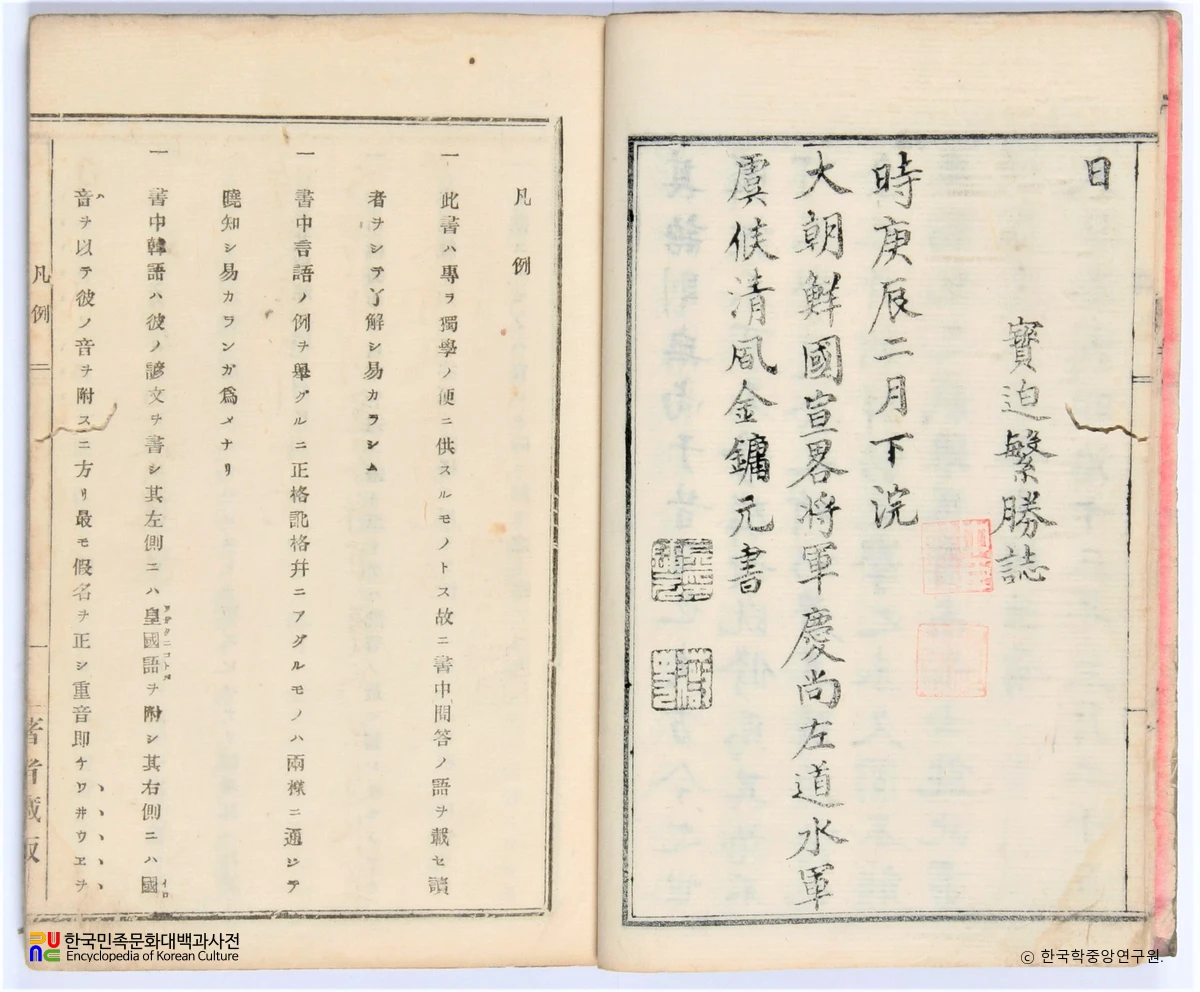 日
寶迫繁勝誌
時庚辰二月下浣
大朝鮮國宣畧将軍慶尚左道水軍
虞候清風金鏞元書
凡例
一 此書ハ專ヲ獨學ノ便ニ供スルモノトス故ニ書中問答ノ語ヲ載セ讀
者ヲシテ了解シ易カラシム
一 書中言語ノ例ヲ舉グルニ正格訛格幷ニアグルモノハ兩樣ニ通ジテ
曉知シ易カランガ爲メナリ
一 書中韓語ハ彼ノ諺文ヲ書シ其左側ニハ皇國語ヲ附シ其右側ニハ國
音ヲ以テ彼ノ音ヲ附スニ方リ最モ假名ヲ正シ重音即ケワ井ウヱヲ
凡例 一
著者藏版
한국민족문화대백과사전
Encyclopedia of Korean Culture
© 한국학중앙연구원.